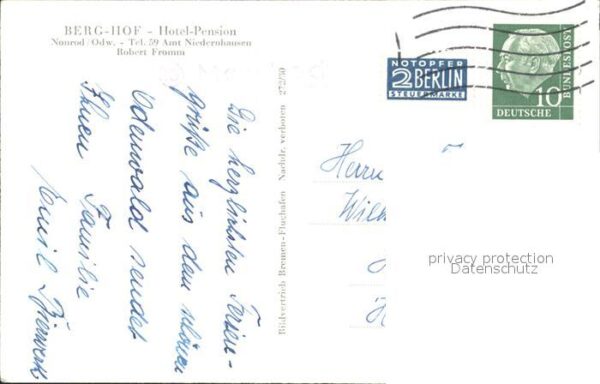 BERG-HOF - Hotel-Pension
Nonrod/Odw. - Tel. 59 Amt Niedernhausen
Robert Fromm
Die herzlichsten Ferien-
grüße aus dem schönen
Odenwald sendet
Ihnen Familie
Emil
Bildvertrieb Bremen-Flughafen Nachdr. verboten 272/50
NOTOPFER
2 BERLIN
STEUERMARKE
10
DEUTSCHE
BUNDESPOST
Herrn
privacy protection
Datenschutz